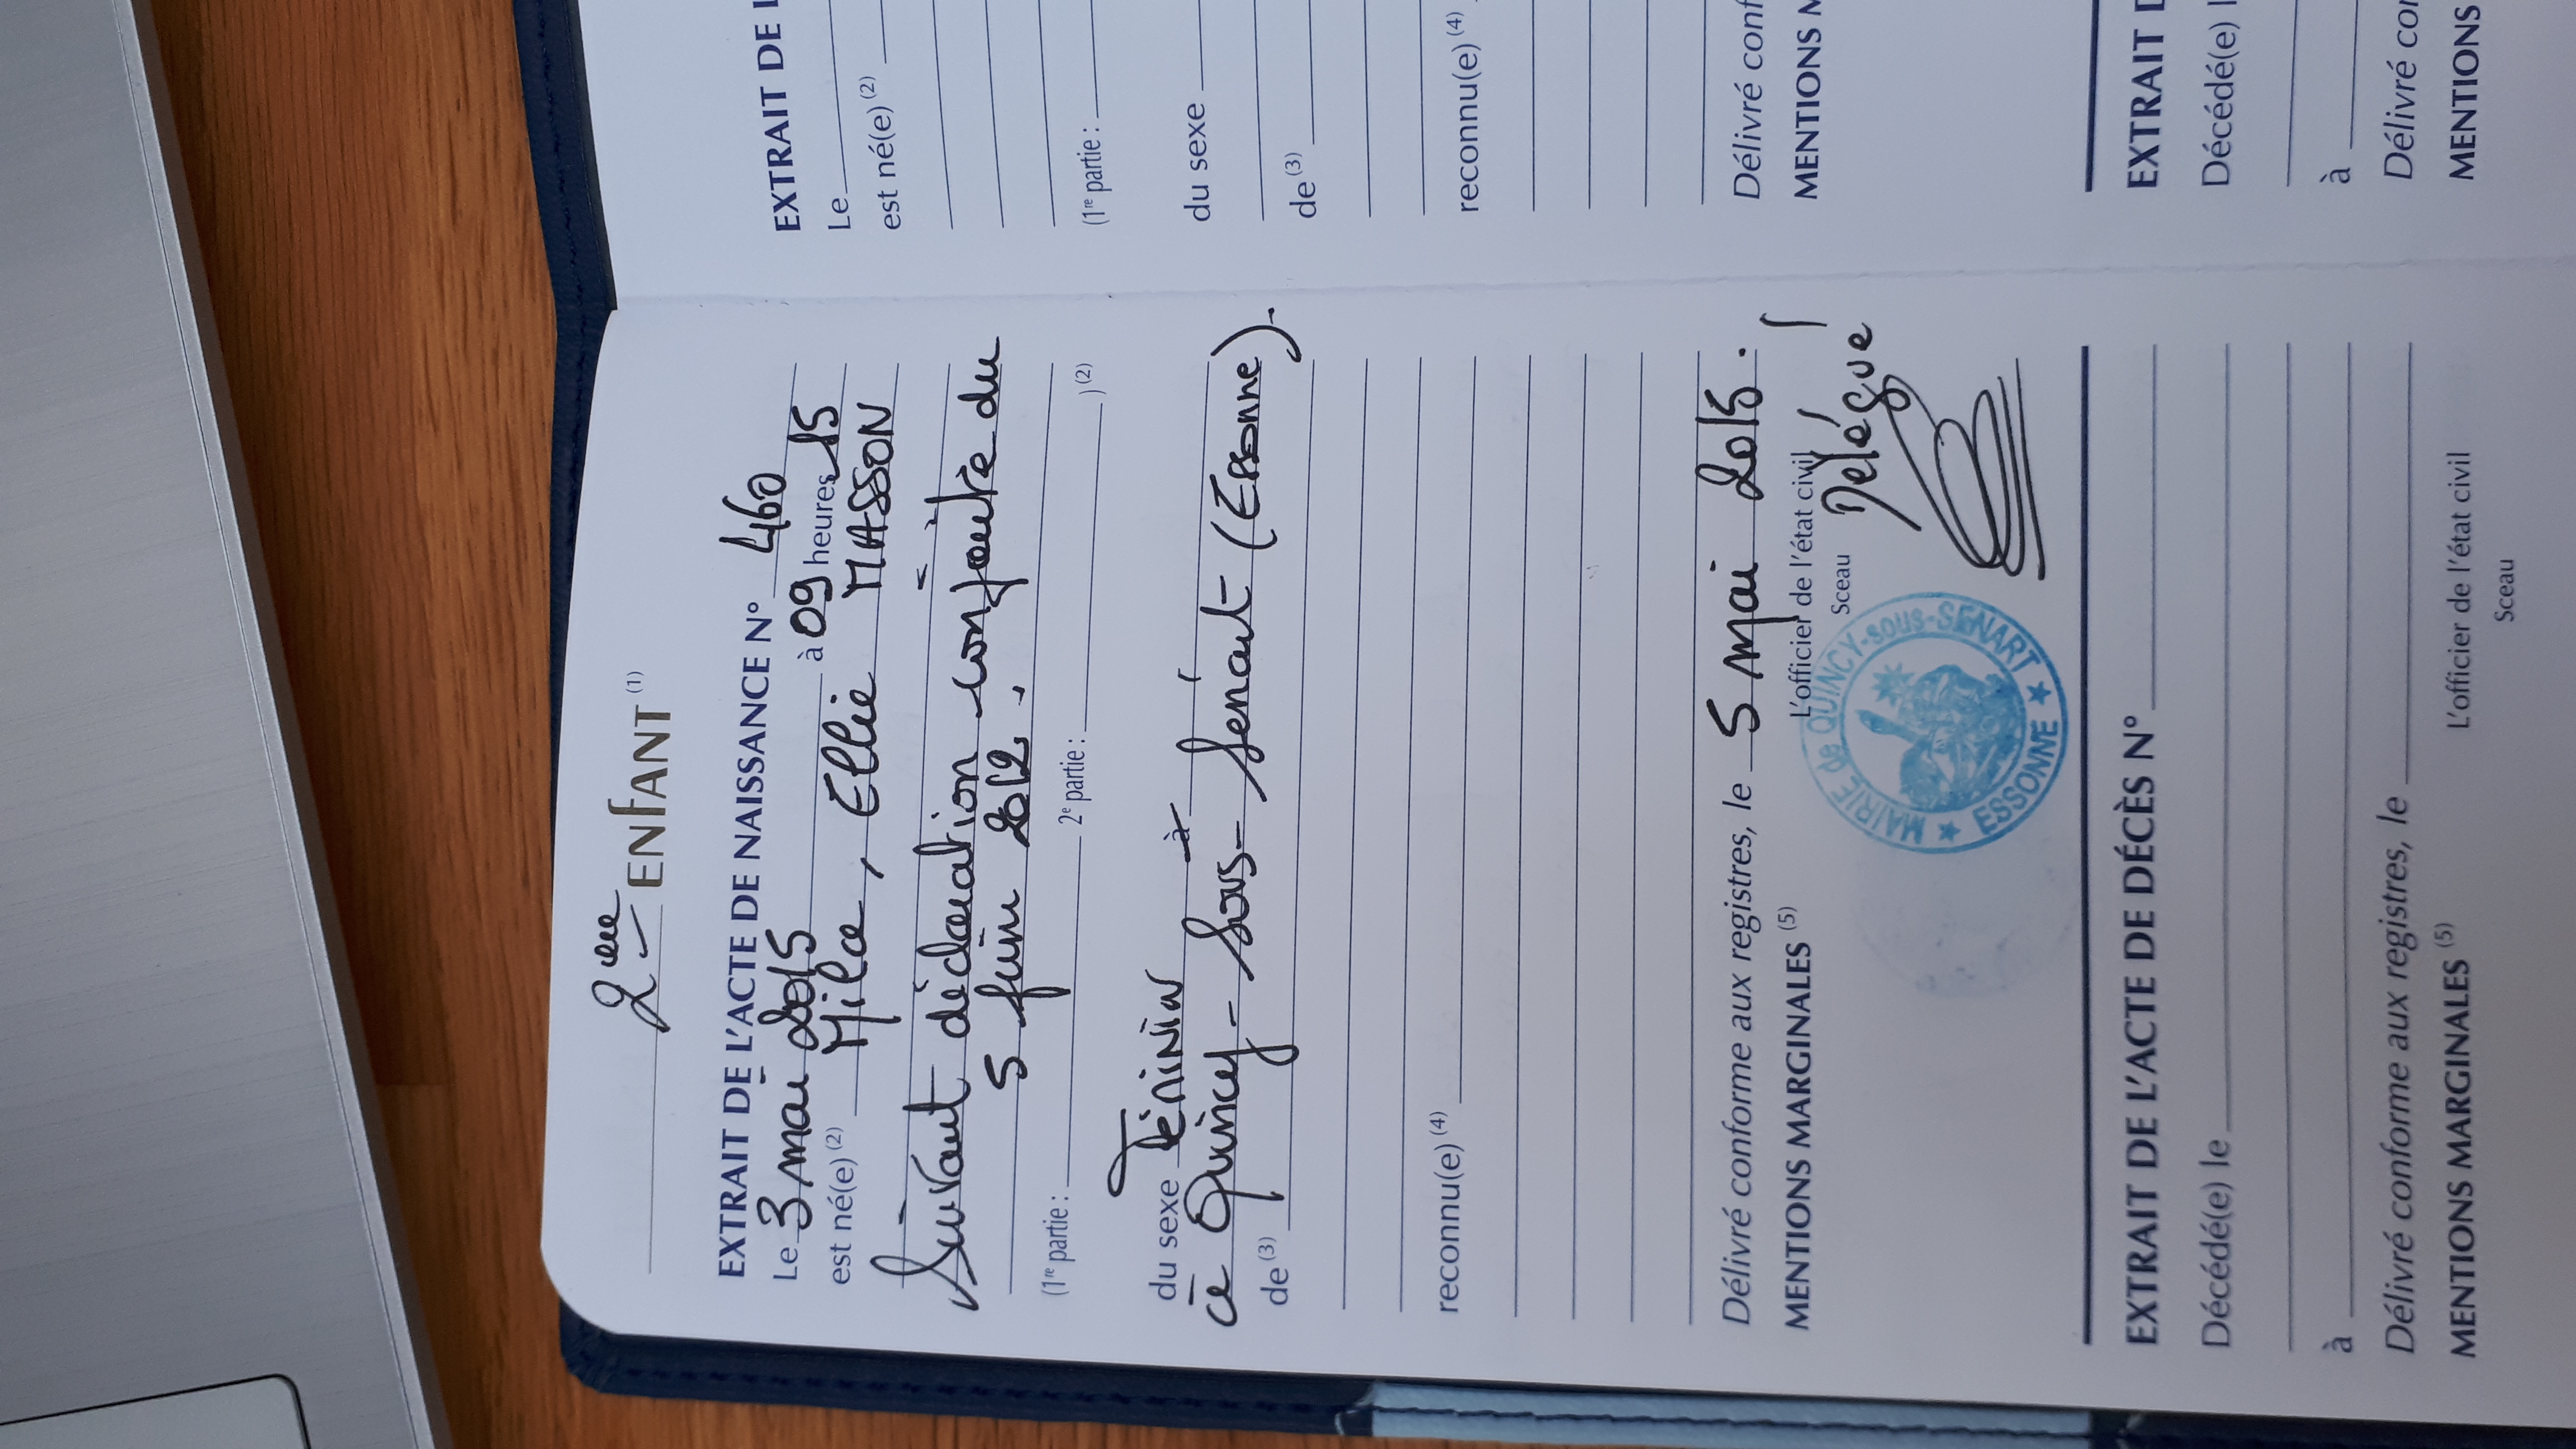 2eme ENFANT (1)
EXTRAIT DE L'ACTE DE NAISSANCE N° 460
Le 3 mai 2015 à 09 heures 15
est né(e) (2) Mila, Ellie MASSON
Suivant déclaration conjointe du
5 juin 2012.
(1re partie : 2e partie : ) (2)
du sexe Féminin à
à Quincy-sous-Sénart (Essonne).
de (3)
reconnu(e) (4)
Délivré conforme aux registres, le 5 mai 2015.
MENTIONS MARGINALES (5) L'officier de l'état civil
Sceau
Délégué
MAIRIE de QUINCY-sous-SENART
★ ESSONNE ★
EXTRAIT DE L'ACTE DE DÉCÈS N°
Décédé(e) le
à
Délivré conforme aux registres, le
MENTIONS MARGINALES (5) L'officier de l'état civil
Sceau
EXTRAIT DE
Le
est né(e) (2)
(1re partie :
du sexe
de (3)
reconnu(e) (4)
Délivré conf
MENTIONS M
EXTRAIT D
Décédé(e) l
à
Délivré con
MENTIONS